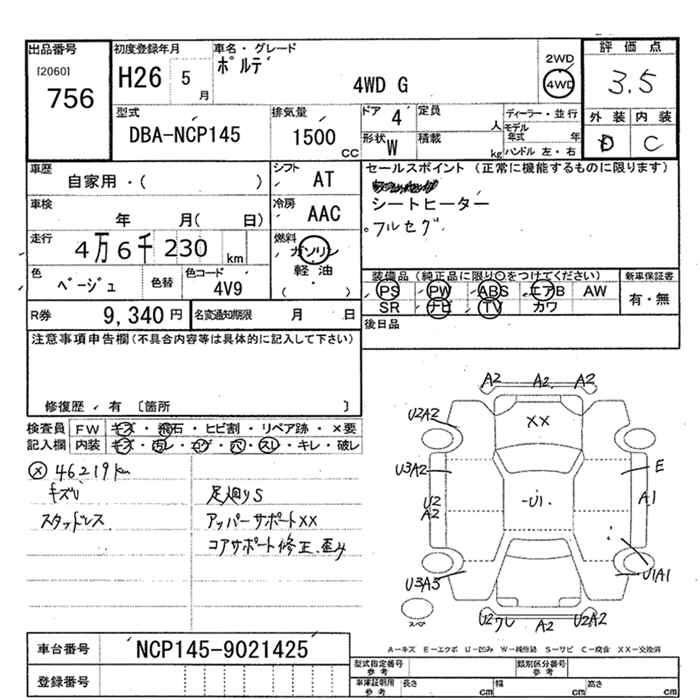 出品番号
[2060]
756
初度登録年月
H26 5 月
車名・グレード
ポルテ
4WD G
2WD
4WD
評価点
3.5
外装 内装
D C
型式
DBA-NCP145
排気量
1500 CC
ドア 4
定員 人
形状 W
積載 kg
ディーラー・並行
モデル年式 年
ハンドル 左・右
車歴
自家用・( )
シフト
AT
セールスポイント (正常に機能するものに限ります)
シートヒーター
フルセグ
車検
年 月( 日)
冷房
AAC
走行
4万6千230 km
燃料
ガソリン
軽油
( ・ )
色
ベージュ
色替
色コード
4V9
装備品 (純正品に限り○をつけてください)
PS PW ABS エアB AW
SR ナビ TV カワ
新車保証書
有・無
R券 9,340 円
名変通知期限 月 日
後日品
注意事項申告欄 (不具合内容等は具体的に記入して下さい)
修復歴 ・ 有 〔箇所 〕
検査員 FW キズ・飛石・ヒビ割・リペア跡・×要
記入欄 内装 キズ・汚レ・コゲ・穴・スレ・キレ・破レ
× 46219km
キズU
スタッドレス
足廻りS
アッパーサポートXX
コアサポート修正、歪み
A2 A2 A2
U2A2
XX
U3A2
E
U2
A2
U1
A1
U3A3
U1A1
スペア
U2ワレ A2 U2A2
A-キズ E-エクボ U-凹み W-補修跡 S-サビ C-腐食 XX-交換済
車台番号
NCP145-9021425
登録番号
型式指定番号 参考
類別区分番号 参考
車庫証明用 参考
長さ cm
幅 cm
高さ cm